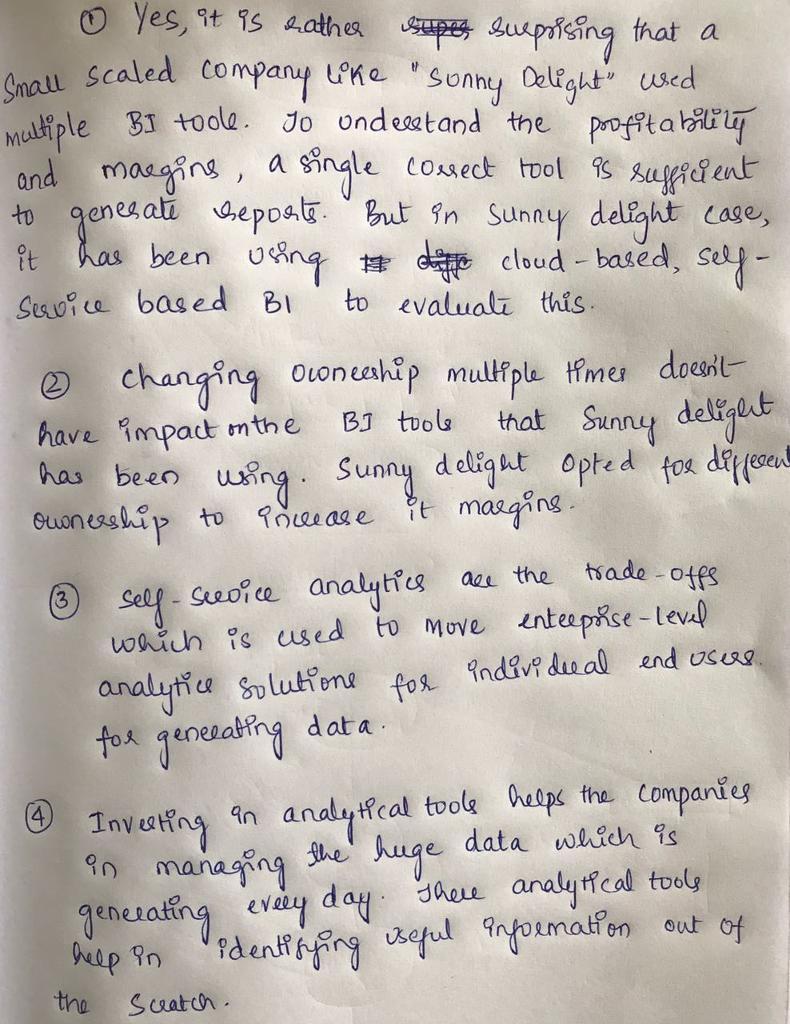 ① Yes, it is rather super surprising that a
Small scaled company like "Sunny Delight" used
multiple BI tools. To understand the profitability
and margins, a single correct tool is sufficient
to generate reports. But in Sunny delight case,
it has been using cloud-based, self-
Service based BI to evaluate this.
② Changing ownership multiple times doesn't
have impact on the BI tools that Sunny delight
has been using. Sunny delight opted for different
ownership to increase it margins.
③ Self-service analytics are the trade-offs
which is used to move enterprise-level
analytics solutions for individual end users
for generating data.
④ Investing in analytical tools helps the companies
in managing the huge data which is
generating every day. These analytical tools
help in identifying useful information out of
the Scratch.